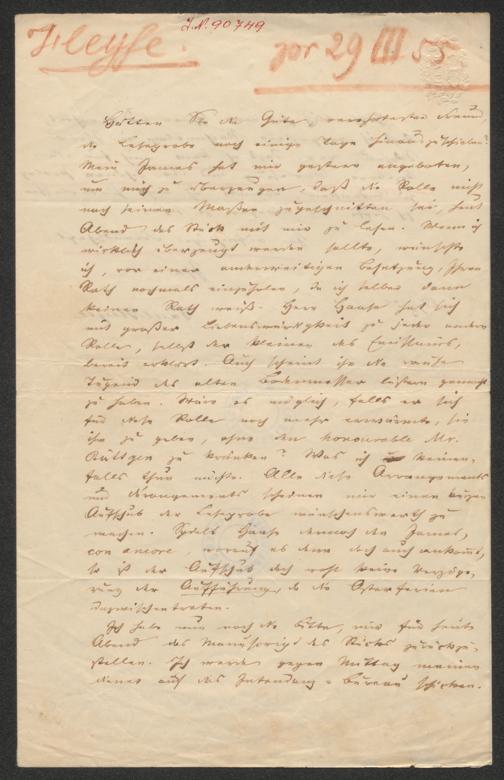 J.N. 90749
Heyse. pr 29 III 55
Hätten Sie die Güte, verehrtester Freund,
die Leseprobe noch einige Tage hinauszuschieben?
Mein James hat mir gestern angeboten,
um mich zu überzeugen, daß die Rolle nicht
nach seinen Maßen zugeschnitten sei, heut
Abend das Stück mit mir zu lesen. Wenn ich
wirklich überzeugt werden sollte, wünschte
ich, vor einer anderweitigen Besetzung, Ihren
Rath nochmals einzuholen, da ich selber dann
keinen Rath weiß. Herr Haase hat sich
mit großer Liebenswürdigkeit zu jeder andern
Rolle, selbst der kleinen des Emissairs,
bereit erklärt. Auch scheint ihn die
Tugend des alten lüstern gemacht
zu haben. Wäre es möglich, falls er sich
für diese Rolle noch mehr erwärmte, sie
ihm zu geben, ohne den honourable Mr.
Büttgen zu kränken? Was ich keinen-
falls thun möchte. Alle diese Arrangements
und dérangements scheinen mir einen kurzen
Aufschub der Leseprobe wünschenswerth zu
machen. Spielt Haase dennoch den James,
con amore, worauf es denn doch auch ankommt,
so ist der Aufschub doch wohl keine Verzöge-
rung der Aufführung, da die Osterferien
dazwischentreten.
Ich habe nun noch die Bitte, mir für heute
Abend das Manuscript des Stücks zurückzu-
stellen. Ich werde gegen Mittag meinen
Diener auf das Intendanz-Bureau schicken.